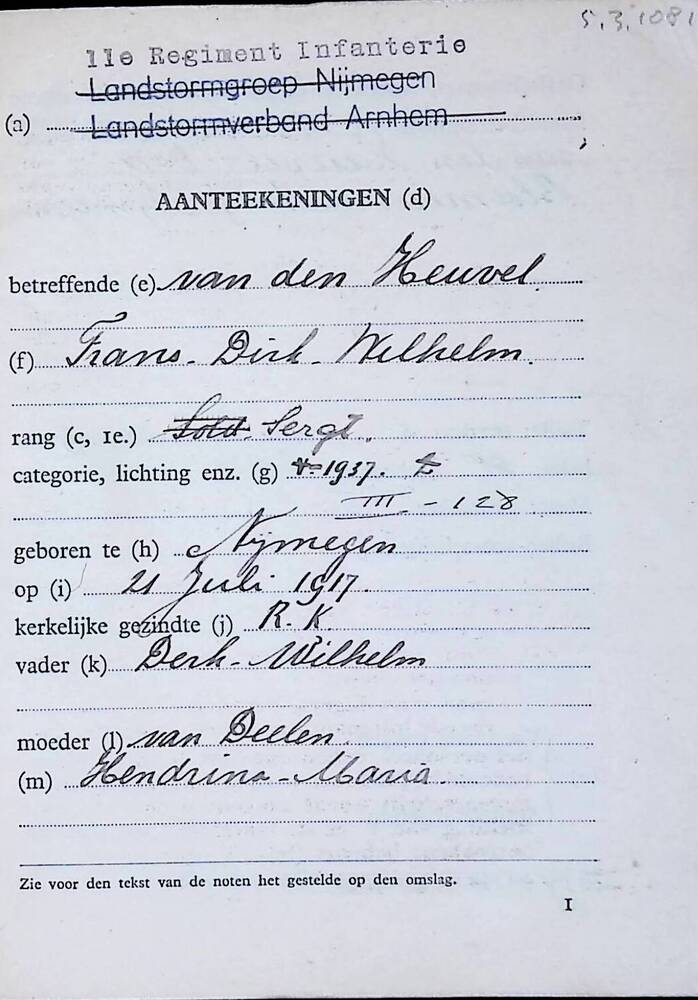 5.3.1081
11e Regiment Infanterie
Landstormgroep Nijmegen
(a) Landstormverband Arnhem
AANTEEKENINGEN (d)
betreffende (e) van den Heuvel.
(f) Frans - Dirk - Wilhelm.
rang (c, 1e.) Sold. Sergt.
categorie, lichting enz. (g) 1937.
III - 128
geboren te (h) Nijmegen
op (i) 21 Juli 1917.
kerkelijke gezindte (j) R. K.
vader (k) Derk - Wilhelm
moeder (l) van Deelen
(m) Hendrina - Maria.
Zie voor den tekst van de noten het gestelde op den omslag.
I